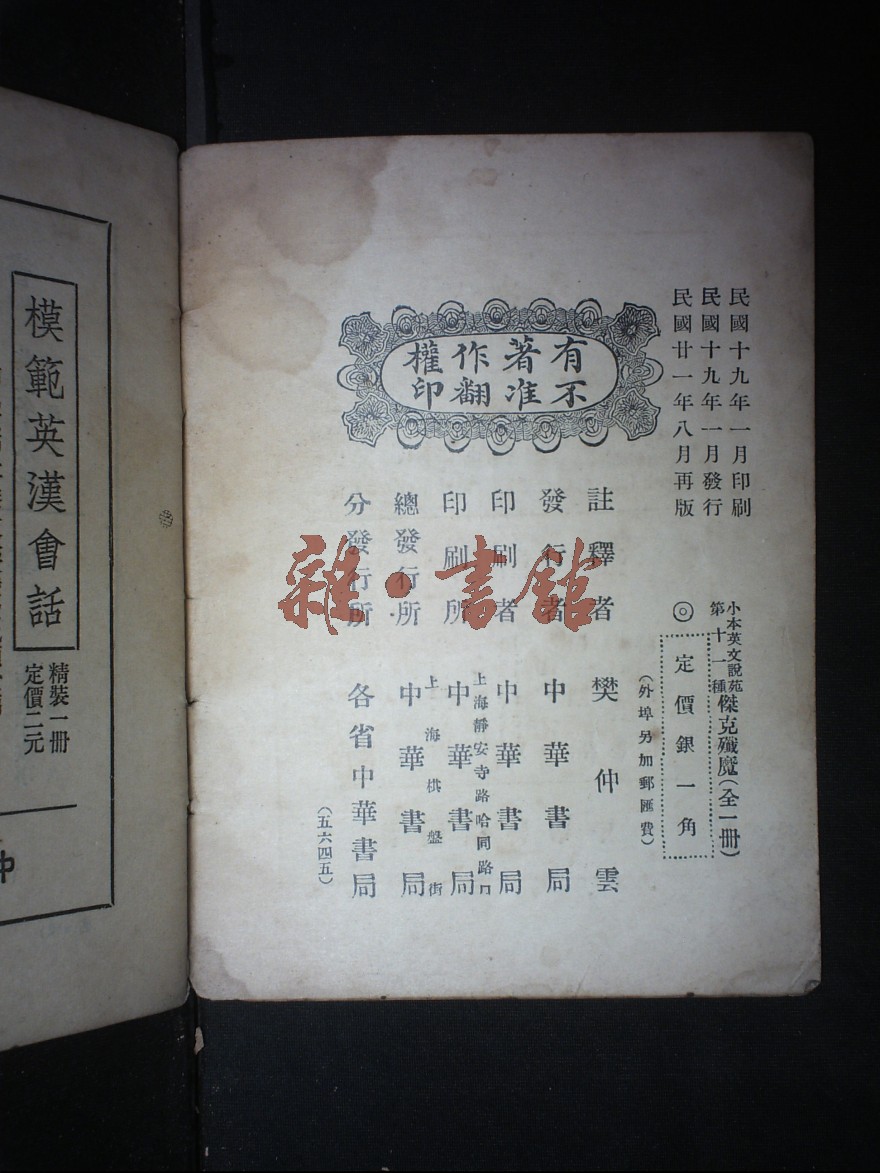 民國十九年一月印刷
民國十九年一月發行
民國廿一年八月再版
小本英文說苑
第十一種
傑克殲魔(全一冊)
◎定價銀一角
(外埠另加郵匯費)
有著作權
不准翻印
註釋者 樊仲雲
發行者 中華書局
印刷者 中華書局
上海靜安寺路哈同路口
印刷所 中華書局
上海棋盤街
總發行所 中華書局
分發行所 各省中華書局
(五六四五)
雜·書館
模範英漢會話
精裝一冊
定價二元